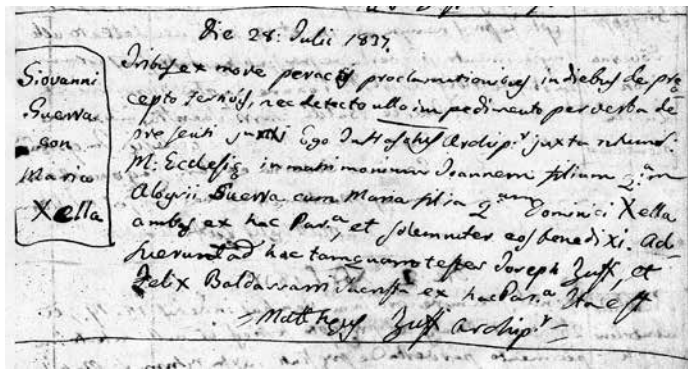 Die 28: Julii 1837,
Giovanni
Guerra
con
Maria
Xella
Tribus ex more peractis proclamationibus, in diebus de prę
cepto festivis, nec detecto ullo impedimento per verba de
presenti junxi Ego Archip.r juxta
M. Ecclesię in matrimonium Joannem filium q.am
Aloysii Guerra cum Maria filia q.am Dominici Xella
ambos ex hac Par.a, et solemniter eos benedixi. Ad
fuerunt ad hac tamquam testes Joseph Zuffi, et
Felix Baldassarri ex hac Par.a Ita est
= Matthęus Zuffi Archip.r =